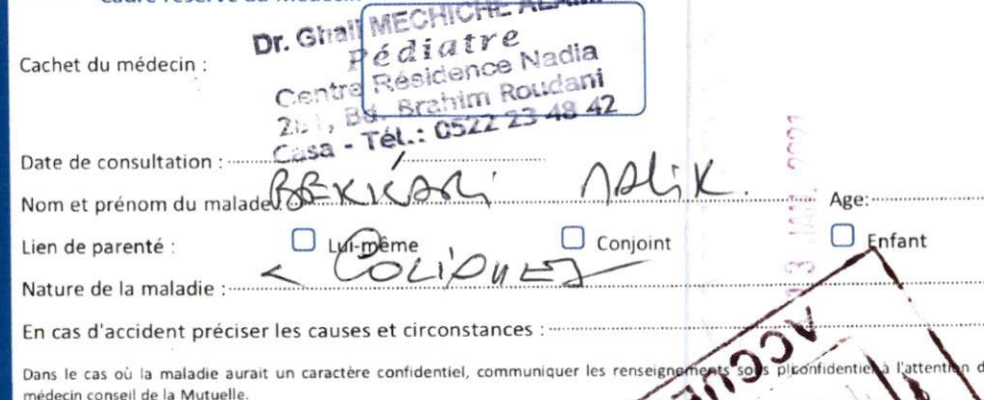 Cachet du médecin :
Dr. Ghali MECHICHE ALAMI
Pédiatre
Centre Résidence Nadia
Bd. Brahim Roudani
Casa - Tél.: 0522 23 48 42
Date de consultation :
Nom et prénom du malade: BEKKARI MALIK. Age:
Lien de parenté : Lui-même Conjoint Enfant
Nature de la maladie : COLIQUES
En cas d'accident préciser les causes et circonstances :
Dans le cas où la maladie aurait un caractère confidentiel, communiquer les renseignements sous pli confidentiel à l'attention d
médecin conseil de la Mutuelle.